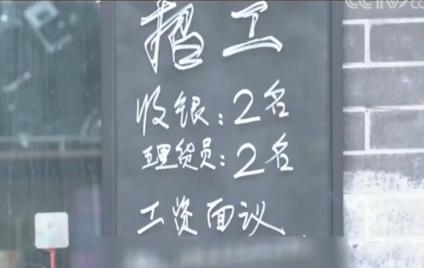 CCTV
招工
收银：2名
理货员：2名
工资面议